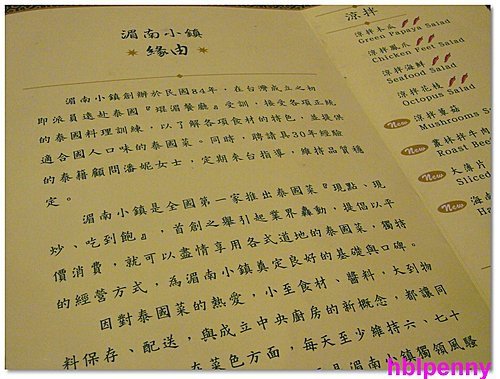 湄南小鎮
緣由
湄南小鎮創辦於民國84年，在台灣成立之初
即派員遠赴泰國『琨湄餐廳』受訓，接受各項正統
的泰國料理訓練，以了解各項食材的特色，並提供
適合國人口味的泰國菜。同時，聘請具30年經驗
的泰籍顧問潘妮女士，定期來台指導，維持品質穩
定。
湄南小鎮是全國第一家推出泰國菜『現點、現
炒、吃到飽』，首創之舉引起業界轟動，提倡以平
價消費，就可以盡情享用各式道地的泰國菜，獨特
的經營方式，為湄南小鎮奠定良好的基礎與口碑。
因對泰國菜的熱愛，小至食材、醬料，大到物
料保存、配送，與成立中央廚房的新概念，都讓同
菜色方面，每天至少維持六、七十
湄南小鎮獨領風騷
涼拌
涼拌木瓜
Green Papaya Salad
涼拌鳳爪
Chicken Feet Salad
涼拌海鮮
Seafood Salad
涼拌花枝
Octopus Salad
New 涼拌蘑菇
Mushrooms S
New
拌牛肉
Roast Bee
New 大薄片
Sliced
New 海南
Ha
hblpenny